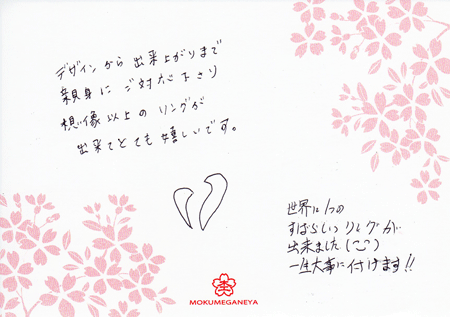 デザインから出来上がりまで
親身にご対応下さり
想像以上のリングが
出来てとても嬉しいです。
世界に1つの
すばらしいリングが
出来ました(^^)
一生大事に付けます!!
MOKUMEGANEYA